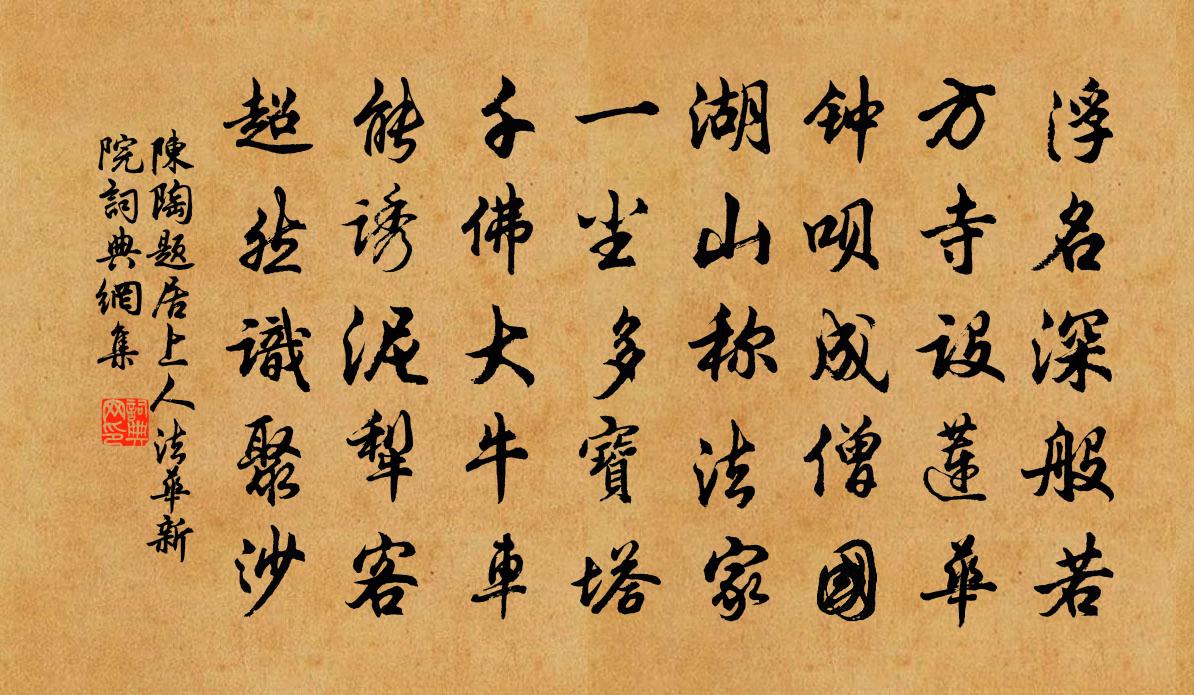 浮名深般若
方寺設蓮華
钟唄成僧國
湖山称法家
一尘多寶塔
千佛大牛車
能誘泥犁客
超然識聚沙
陳陶題居上人法華新
院詞典網集
詞典網印